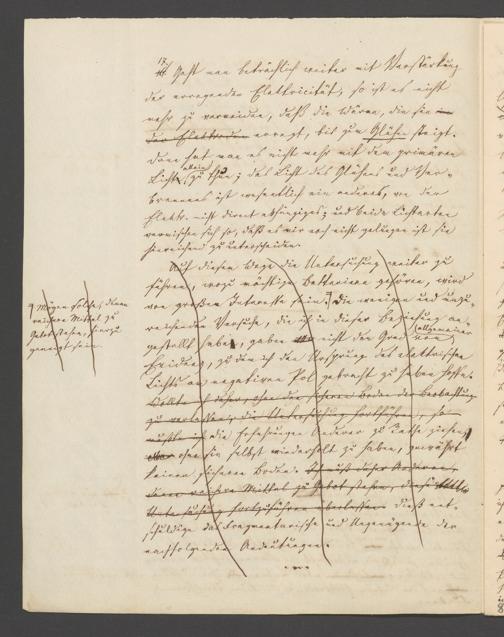 17. Geht man beträchtlich weiter mit Verstärkung
der erregenden Elektricität, so ist es nicht
mehr zu vermeiden, daß die Wärme, die sie in
der Elektroden erregt, bis zum Glühen steigt.
Dann hat man es nicht mehr mit dem primären
Lichte allein zu thun; das Licht des Glühens und Ver-
brennens ist wesentlich ein anderes, von der
Elektr. nicht direct abhängiges; und beide Lichtarten
vermischen sich so, daß es mir noch nicht gelungen ist sie
hinreichend zu unterscheiden.
Auf diesem Wege die Untersuchung weiter zu
führen, wozu mächtige Batterien gehören, wird
von großem Interesse sein. Die wenigen und unzu-
reichenden Versuche, die ich in dieser Beziehung an-
gestellt habe, gaben nicht den Grad von allgemeiner
Evidenz, zu dem ich den Ursprung des elektrischen
Lichts am negativen Pol gebracht zu haben hoffe.
Wollte ich daher, ohne den sichern Boden der Beobachtung
zu verlassen, die Untersuchung fortführen, so
müßte ich die Erfahrungen Anderer zu Rathe ziehen,
aber ohne sie selbst wiederholt zu haben, gewährt
keinen sichern Boden.
denen reichere Mittel zu Gebot stehen, diese
Untersuchung fortzuführen überlassen. Dieß ent-
schuldige das Fragmentarische und Ungenügende der
nachfolgenden Andeutungen.
Mögen solche, denen
reichere Mittel zu
Gebot stehen, hierzu
geneigt sein.